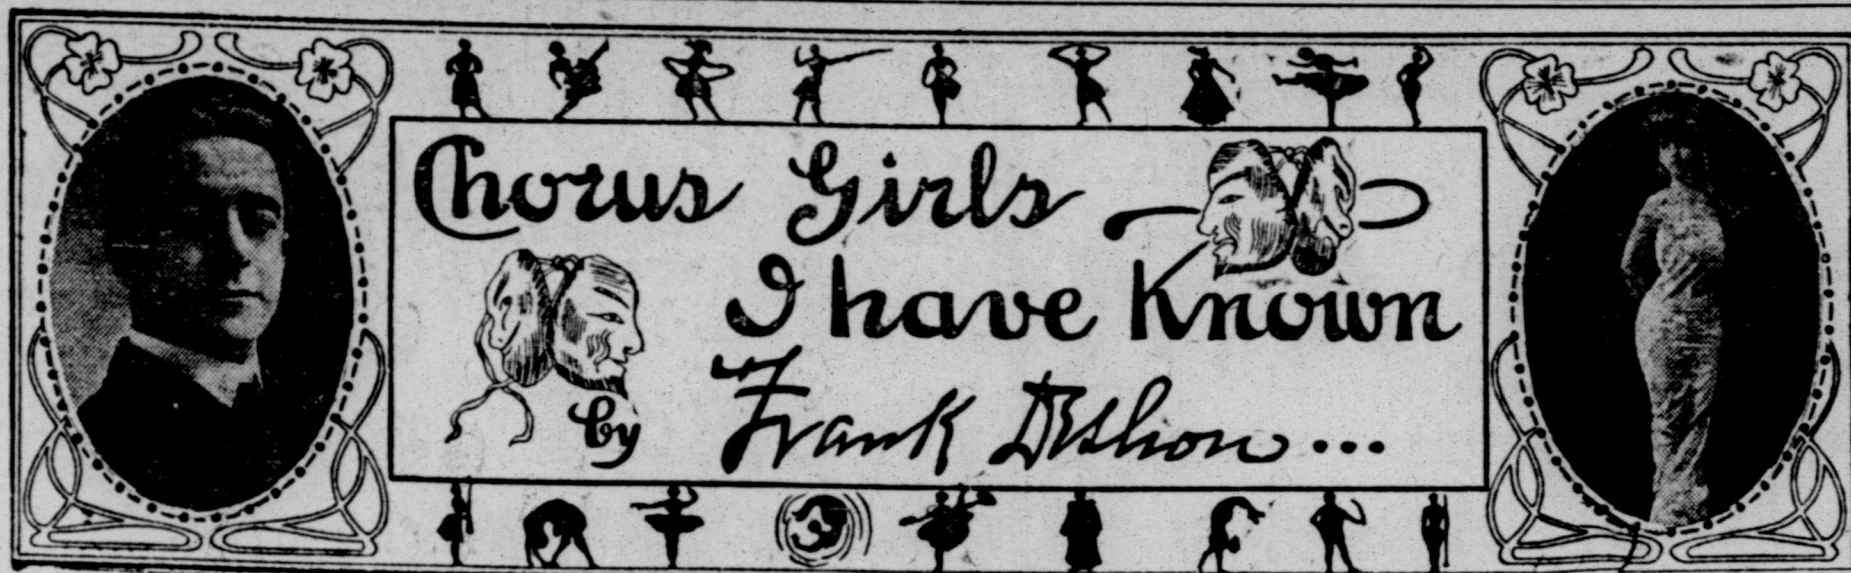 Chorus Girls
I have Known
by Frank Deshon...